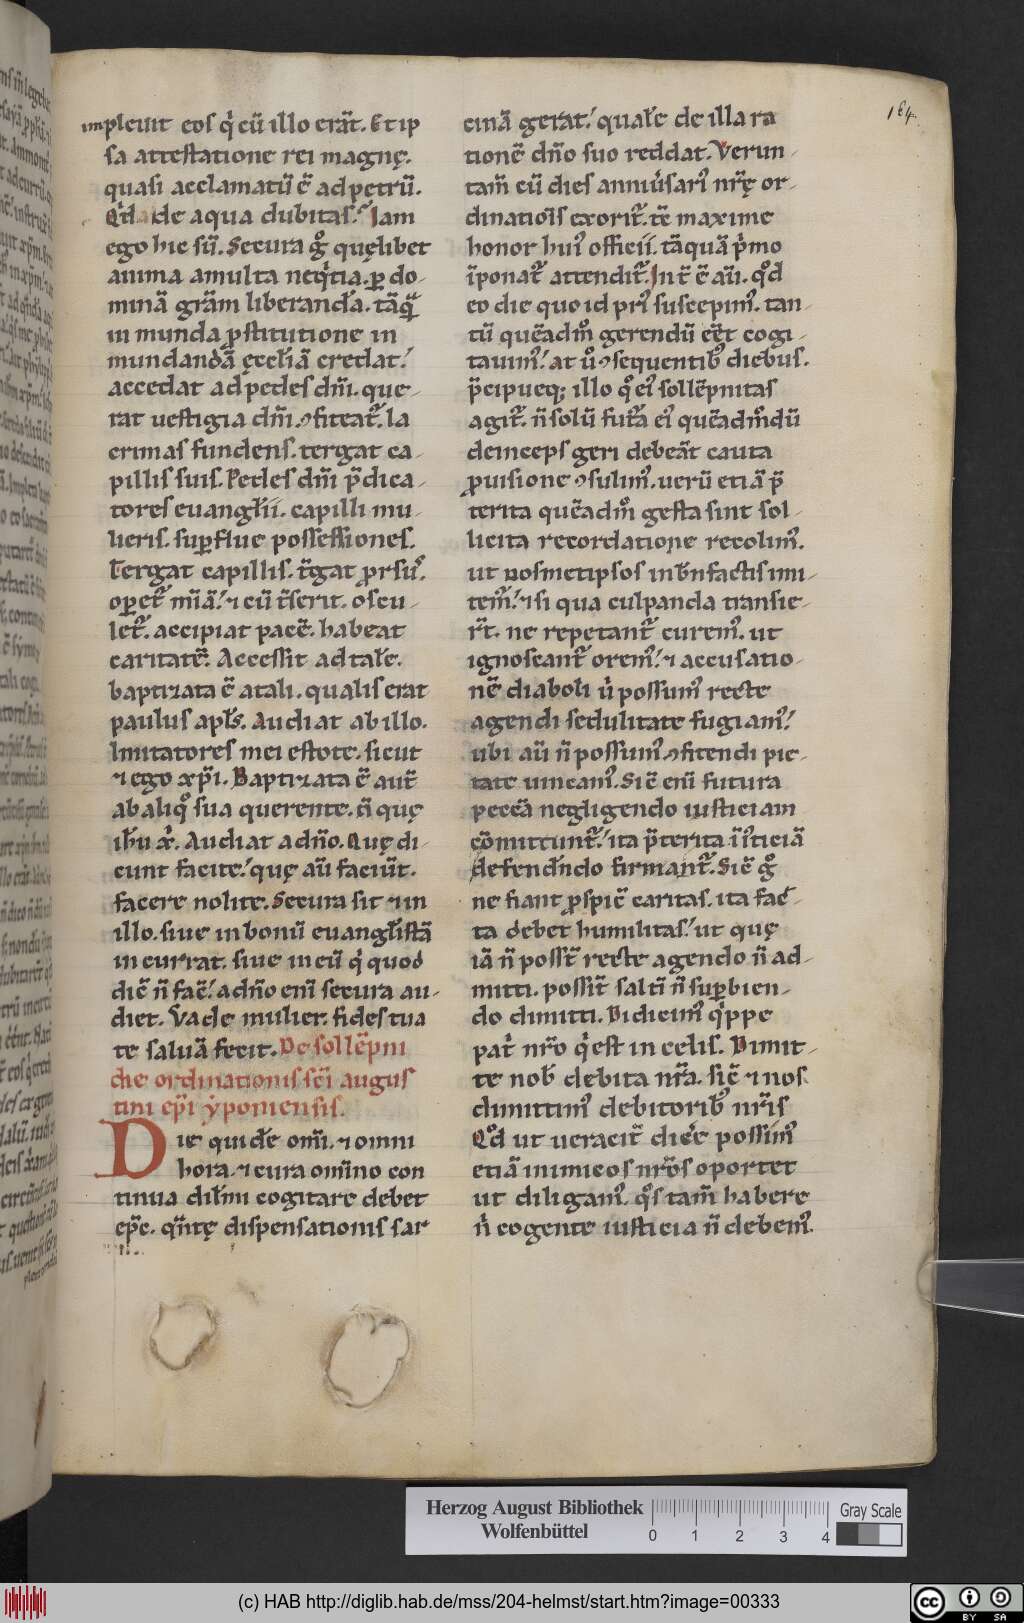 164.
impleuit eos q̇ cū illo erāt. Et ip
sa attestatione rei magnę.
quasi acclamatū ē ad petrū.
Qd de aqua dubitas. Iam
ego hic sū. Secura gͦ quęlibet
anima a multa neq̇tia. ꝑ do-
minā grām liberanda. tāq̄
in munda ꝓstitutione in
mundandā ęccliā credat.
accedat ad pedes dñi. que-
rat uestigia dñi. ꝯfiteat᷑. la
crimas fundens. tergat ca-
pillis suis. Pedes dñi p̄dica-
tores euanglii. capilli mu-
lieris. suꝑflue possessiones.
Tergat capillis. t̄gat ꝓrsus᾽.
oꝑet᷑ mīā. ⁊ cū t̄serit. oscu-
let᷑. accipiat pacē. habeat
caritatē. Accessit ad tałe.
baptizata ē a tali. qualis erat
paulus apłs. Audiat ab illo.
Imitatores mei estote. sicut
⁊ ego xp̄i. Baptizata ē aut̄
ab aliqͦ sua querente. ñ quę
ihu xͥ. Audiat a dño. Quę di-
cunt facite. quę au̅ faciūt.
facere nolite. Secura sit ⁊ in
illo. siue in bonū euanglistā
incurrat. siue in eū q̇ quod
dic̄ ñ fac̄. a dño enī secura au-
diet. Vade mulier. fides tua
te saluā fecit. De sollēpni
die ordinationis sc̄i augus
tini ep̄i yponiensis.
Die quidē omī. ⁊ omni
hora. ⁊ cura omīno con
tinua dił̄mi cogitare debet
ep̄c. q̄ntę dispensationis sar
cinā gerat. quałe de illa ra
tionē dño suo reddat. Verun-
tam̄ cū dies anniu̇sari᾽ nr̄ę or-
dinatiōis exorit᷑. tc̄ maxime
honor hui᾽ officii. tāquā ṗmo
īponat᷑ attendit᷑. Int̄ ē au̅. qͦd
eo die quo id pri᾽ suscepim᾽. tan-
tū quēadmͦ gerendū eēt cogi-
tauim᾽. at uͦ ꝯsequentib᾽ diebus.
p̄cipueq; illo qͦ ei᾽ sollēpnitas
agit᷑. ñ solū futa ei᾽ quēadmͦdū
deinceps geri debeāt cauta
ꝓuisione ꝯsulim᾽. uerū etiā p̄
terita quēadmͦ gesta sint sol-
licita recordatione recolim᾽.
ut nosmetipsos in bn̄factis imi-
tem᾽. ⁊ si qua culpanda transie-
rt̄. ne repetant᷑ curem᾽. ut
ignoscant᷑ orem᾽. ⁊ accusatio-
nē diaboli u̇ possum᾽ recte
agendi sedulitate fugiam᾽.
ubi au̅ ñ possum᾽ ꝯfitendi pie-
tate uincam᾽. Sic̄ enī futura
peccā negligendo iusticiam
cōmittunt᷑. ita p̄terita īiticiā
defendndo firmant᷑. Sic̄ gͦ
ne fiant ꝓspic̄ caritas. ita fac̄-
ta debet humilitas. ut quę
iā ñ posst̄ recte agendo ñ ad-
mitti. possīt saltī ñ suꝑbien-
do dimitti. Didicim᾽ q̇ppe
pat̄ nr̄o q̇ est in celis. Dimit-
te nob̄ debita nr̄a. sic̄ ⁊ nos
dimittim᾽ debitorib᾽ nr̄is
Qͦd ut ueracit̄ dic̄e possim᾽
etiā inimicos nr̄os oportet
ut diligam᾽. qͦs tam̄ habere
ṅ cogente iusticia ñ debem᾽.
Herzog August Bibliothek
Wolfenbüttel
0 1 2 3 4
Gray Scale
(c) HAB http://diglib.hab.de/mss/204-helmst/start.htm?image=00333
cc BY SA